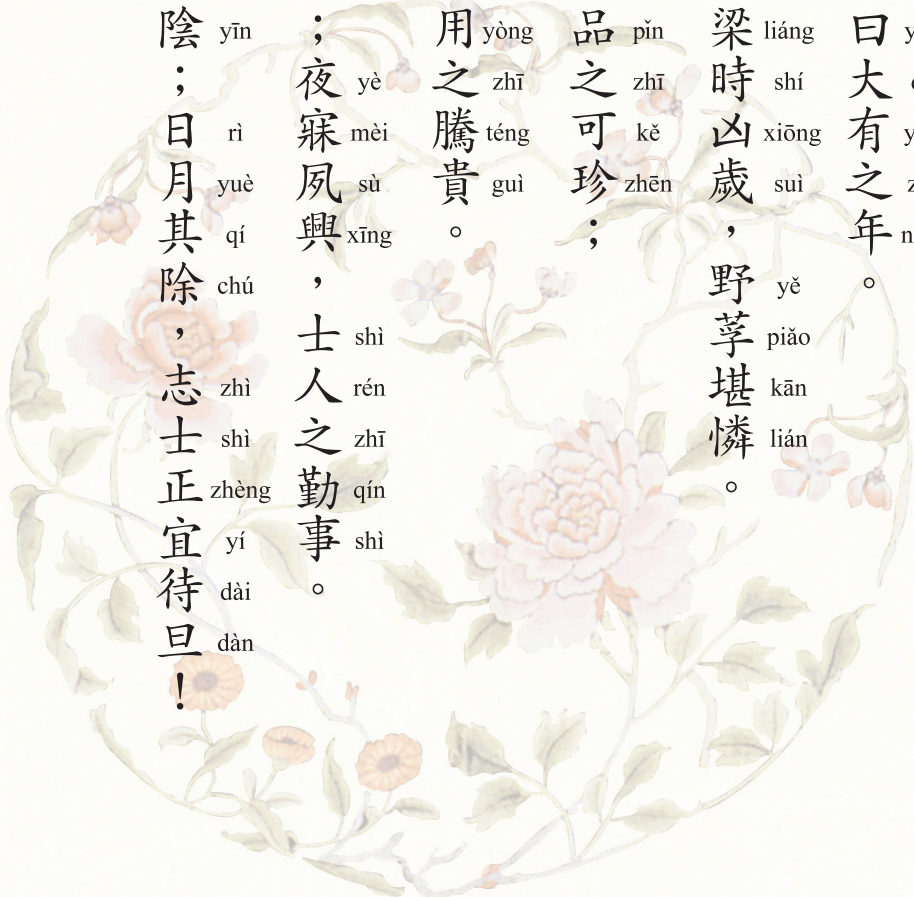 曰大有之年。
梁時凶歲，野莩堪憐。
liáng shí xiōng suì yě piǎo kān lián
品之可珍；
pǐn zhī kě zhēn
用之騰貴。
yòng zhī téng guì
；夜寐夙興，士人之勤事。
yè mèi sù xīng shì rén zhī qín shì
陰；日月其除，志士正宜待旦！
yīn rì yuè qí chú zhì shì zhèng yí dài dàn